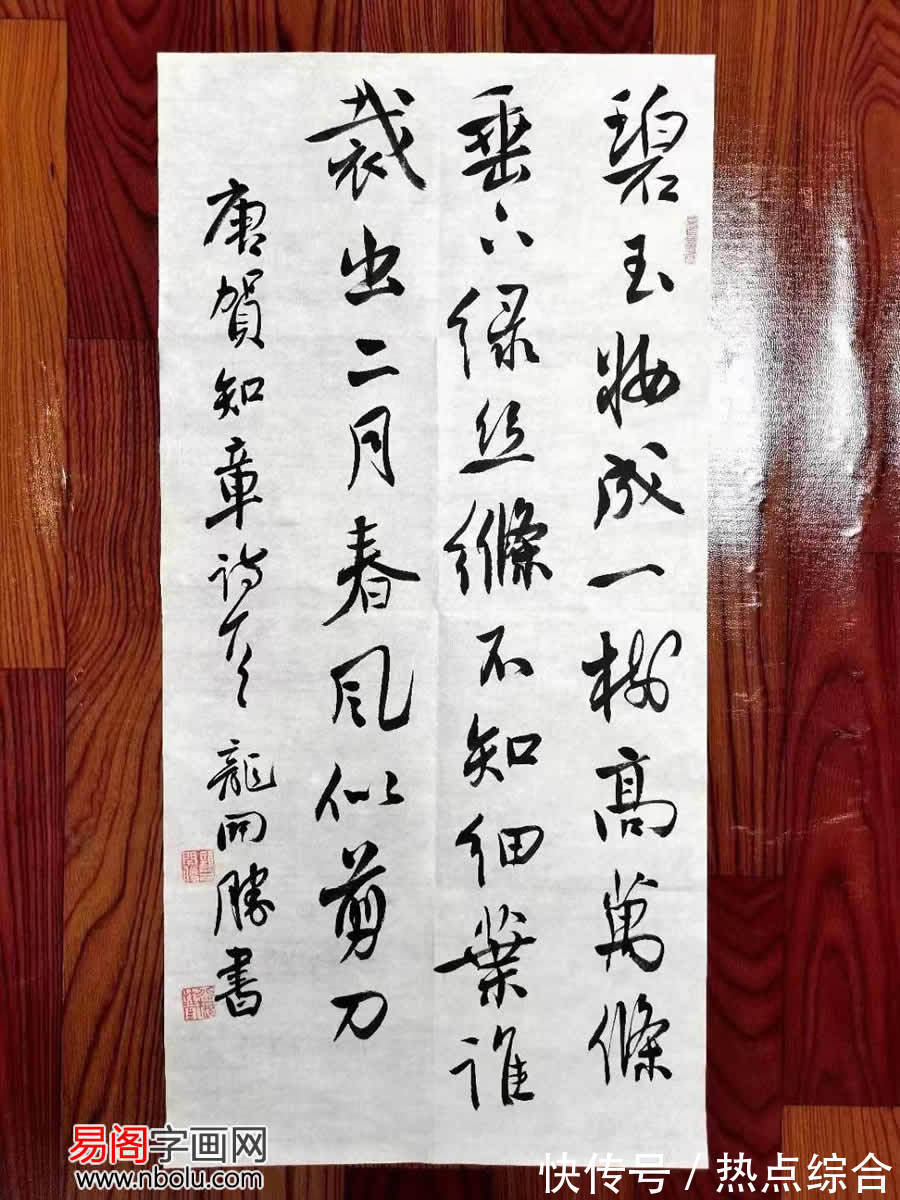 碧玉妝成一樹高萬條
垂下绿丝縧不知细葉谁
裁出二月春风似剪刀
唐賀知章诗一首 龍開勝書
易阁字画网
www.nbolu.com
快传号 / 热点综合